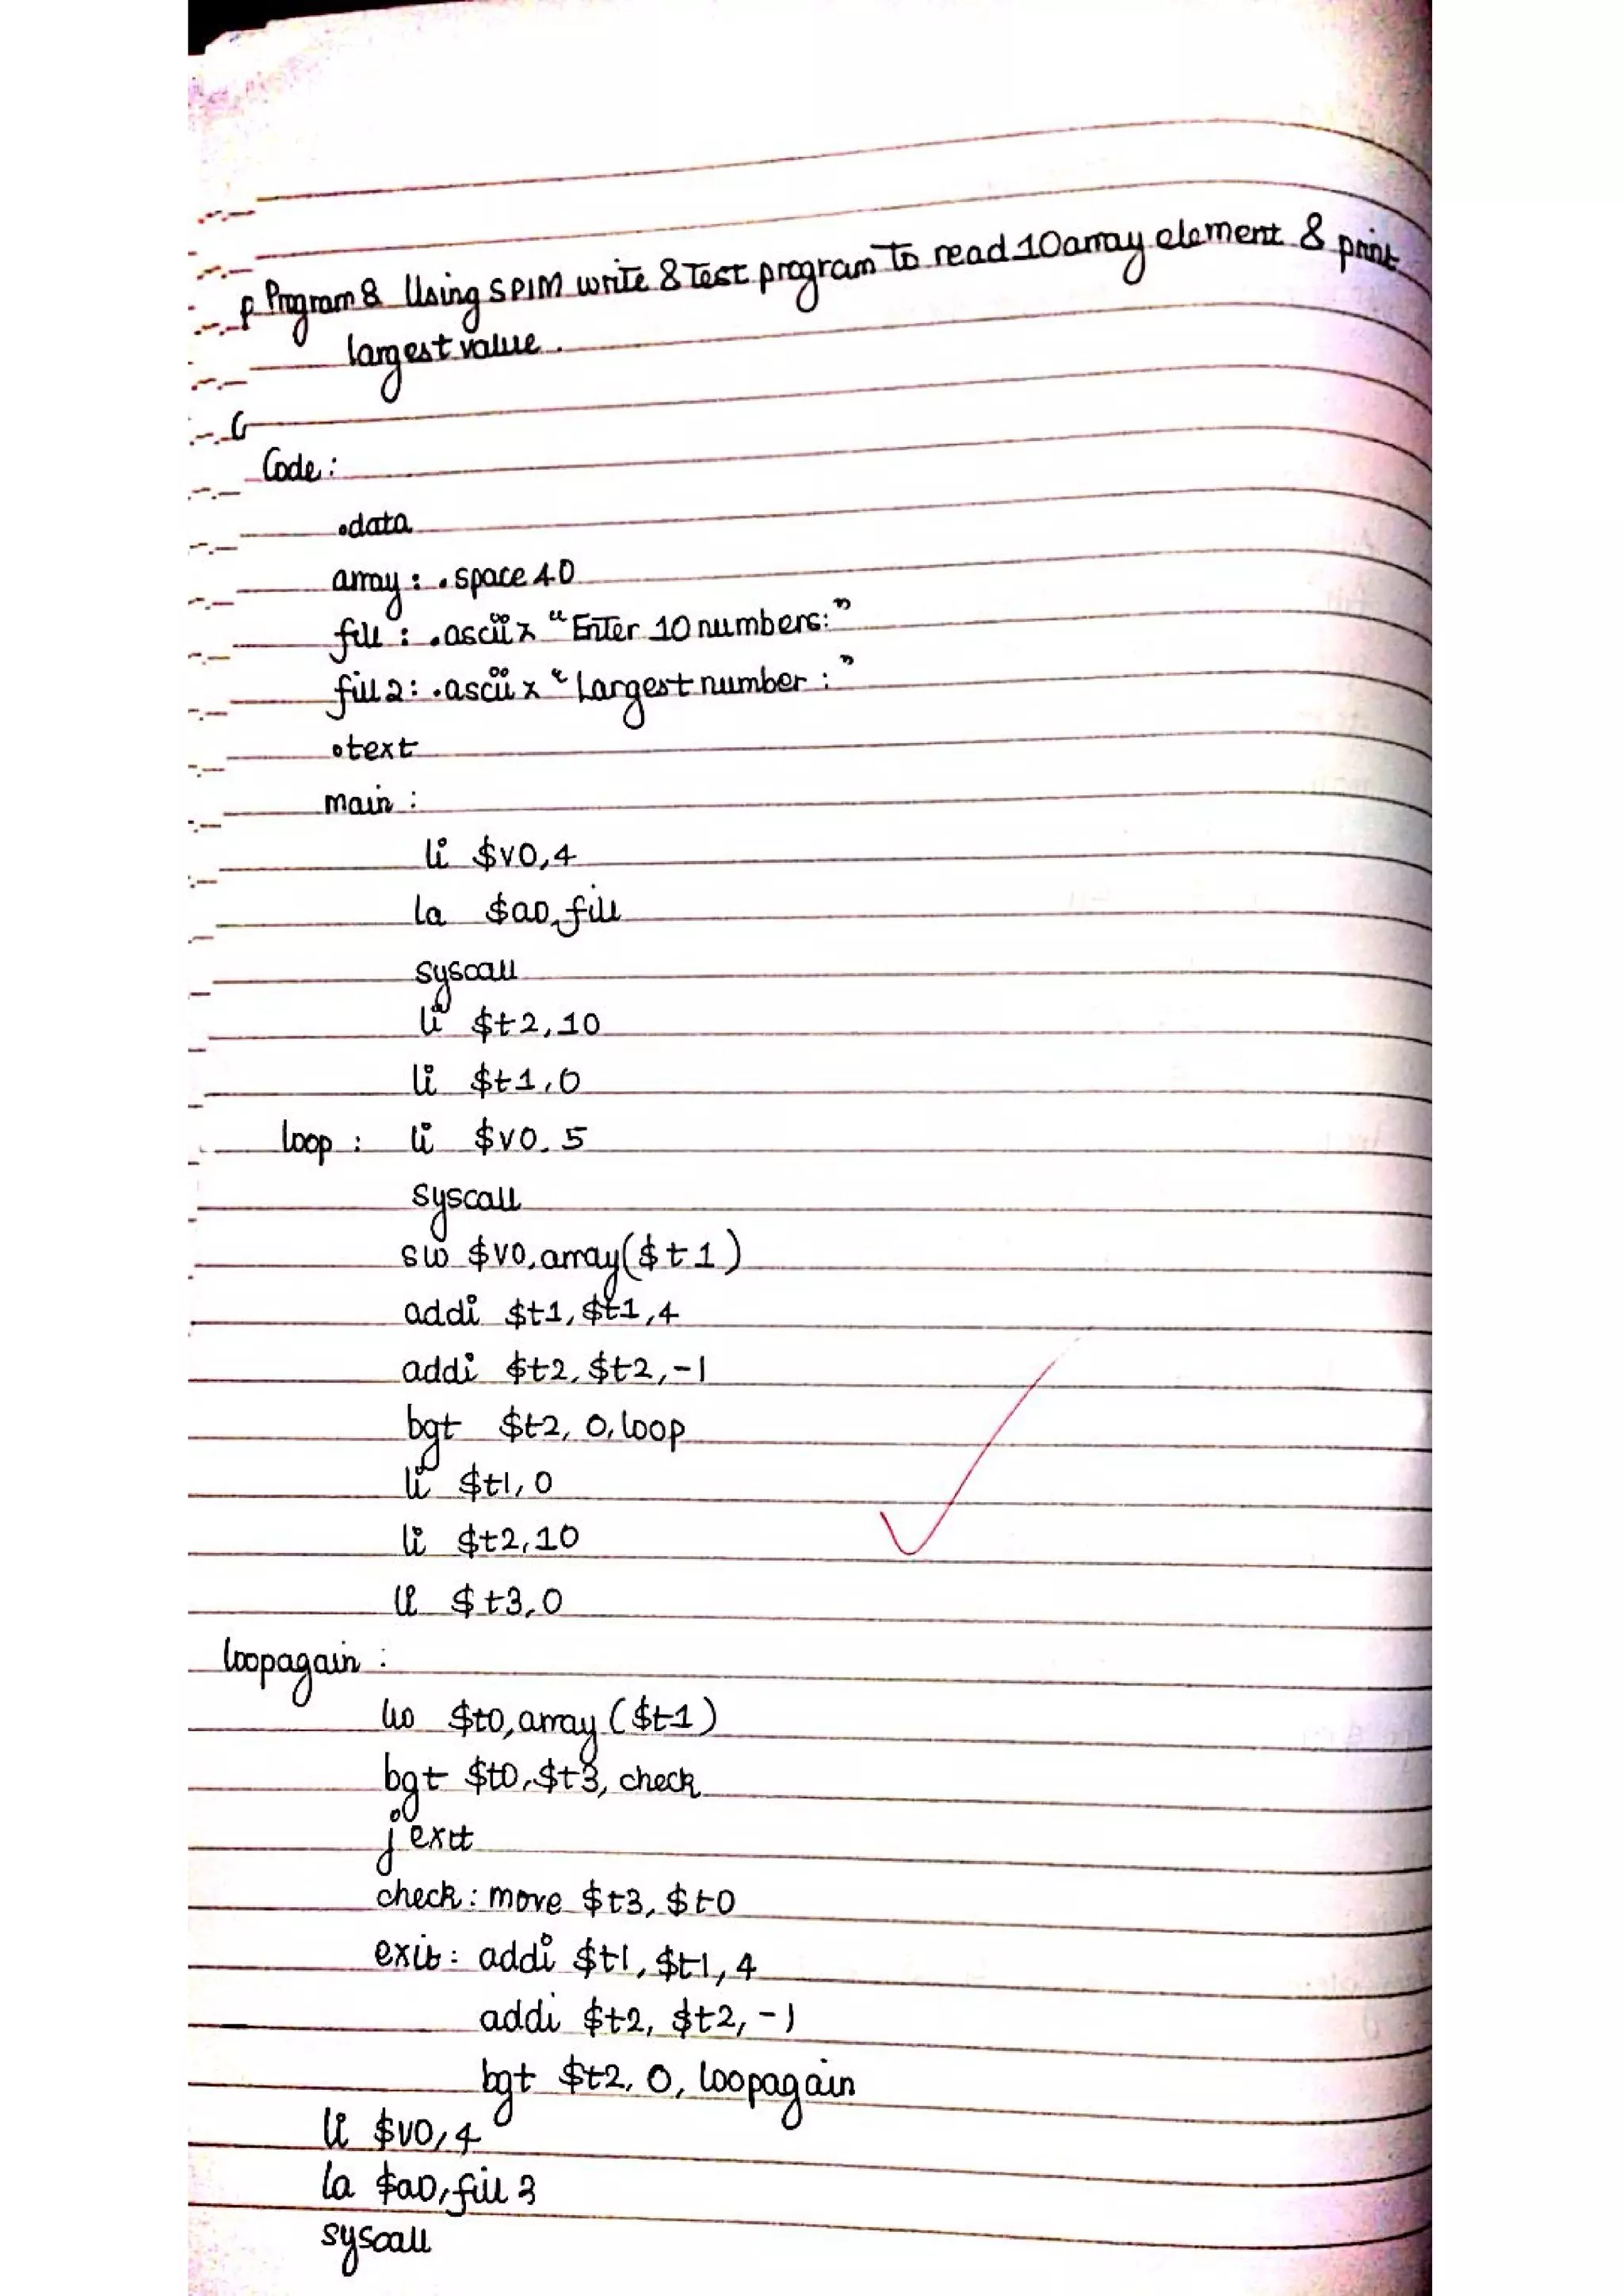 Program 8 Using SPIM write & Test program To read 10 array element & print
largest value.
Code:
.data
array: .space 40
fill: .asciiz "Enter 10 numbers:"
fill2: .asciiz "Largest number:"
.text
main:
li $v0,4
la $a0,fill
syscall
li $t2,10
li $t1,0
loop: li $v0,5
syscall
sw $v0,array($t1)
addi $t1,$t1,4
addi $t2,$t2,-1
bgt $t2, 0,loop
li $t1,0
li $t2,10
li $t3,0
loopagain:
lw $t0,array($t1)
bgt $t0,$t3, check
j exit
check: move $t3,$t0
exit: addi $t1,$t1,4
addi $t2, $t2,-1
bgt $t2, 0, loopagain
li $v0,4
la $a0,fill 2
syscall